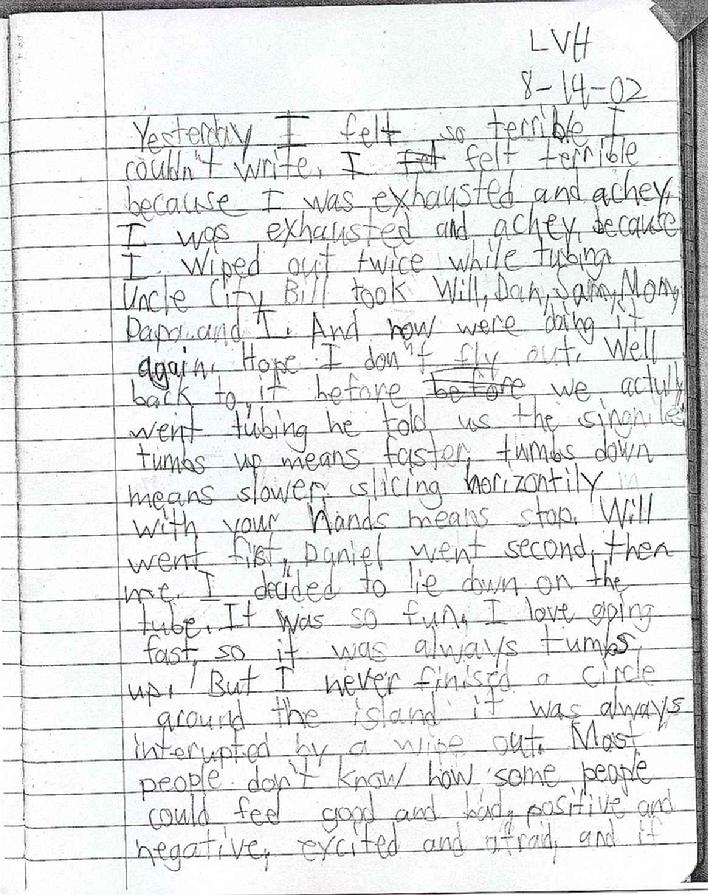 LVH
8-14-02
Yesterday I felt so terrible I
couldn't write. I fet felt terrible
because I was exhausted and achey.
I was exhausted and achey, because
I wiped out twice while tubing
Uncle City Bill took Will, Dan, Sam, Mom,
Papa and I. And now were doing it
again. Hope I don't fly out. Well
back to it before before we actully
went tubing he told us the singnles
tumbs up means faster, tumbs down
means slower, slicing horizontily
with your hands means stop. Will
went first, Daniel went second, then
me. I decided to lie down on the
tube. It was so fun. I love going
fast, so it was always tumbs
up! But I never finised a circle
around the island it was always
interupted by a wipe out. Most
people don't know how some people
could feel good and bad, positive and
negative, excited and afrad, and if